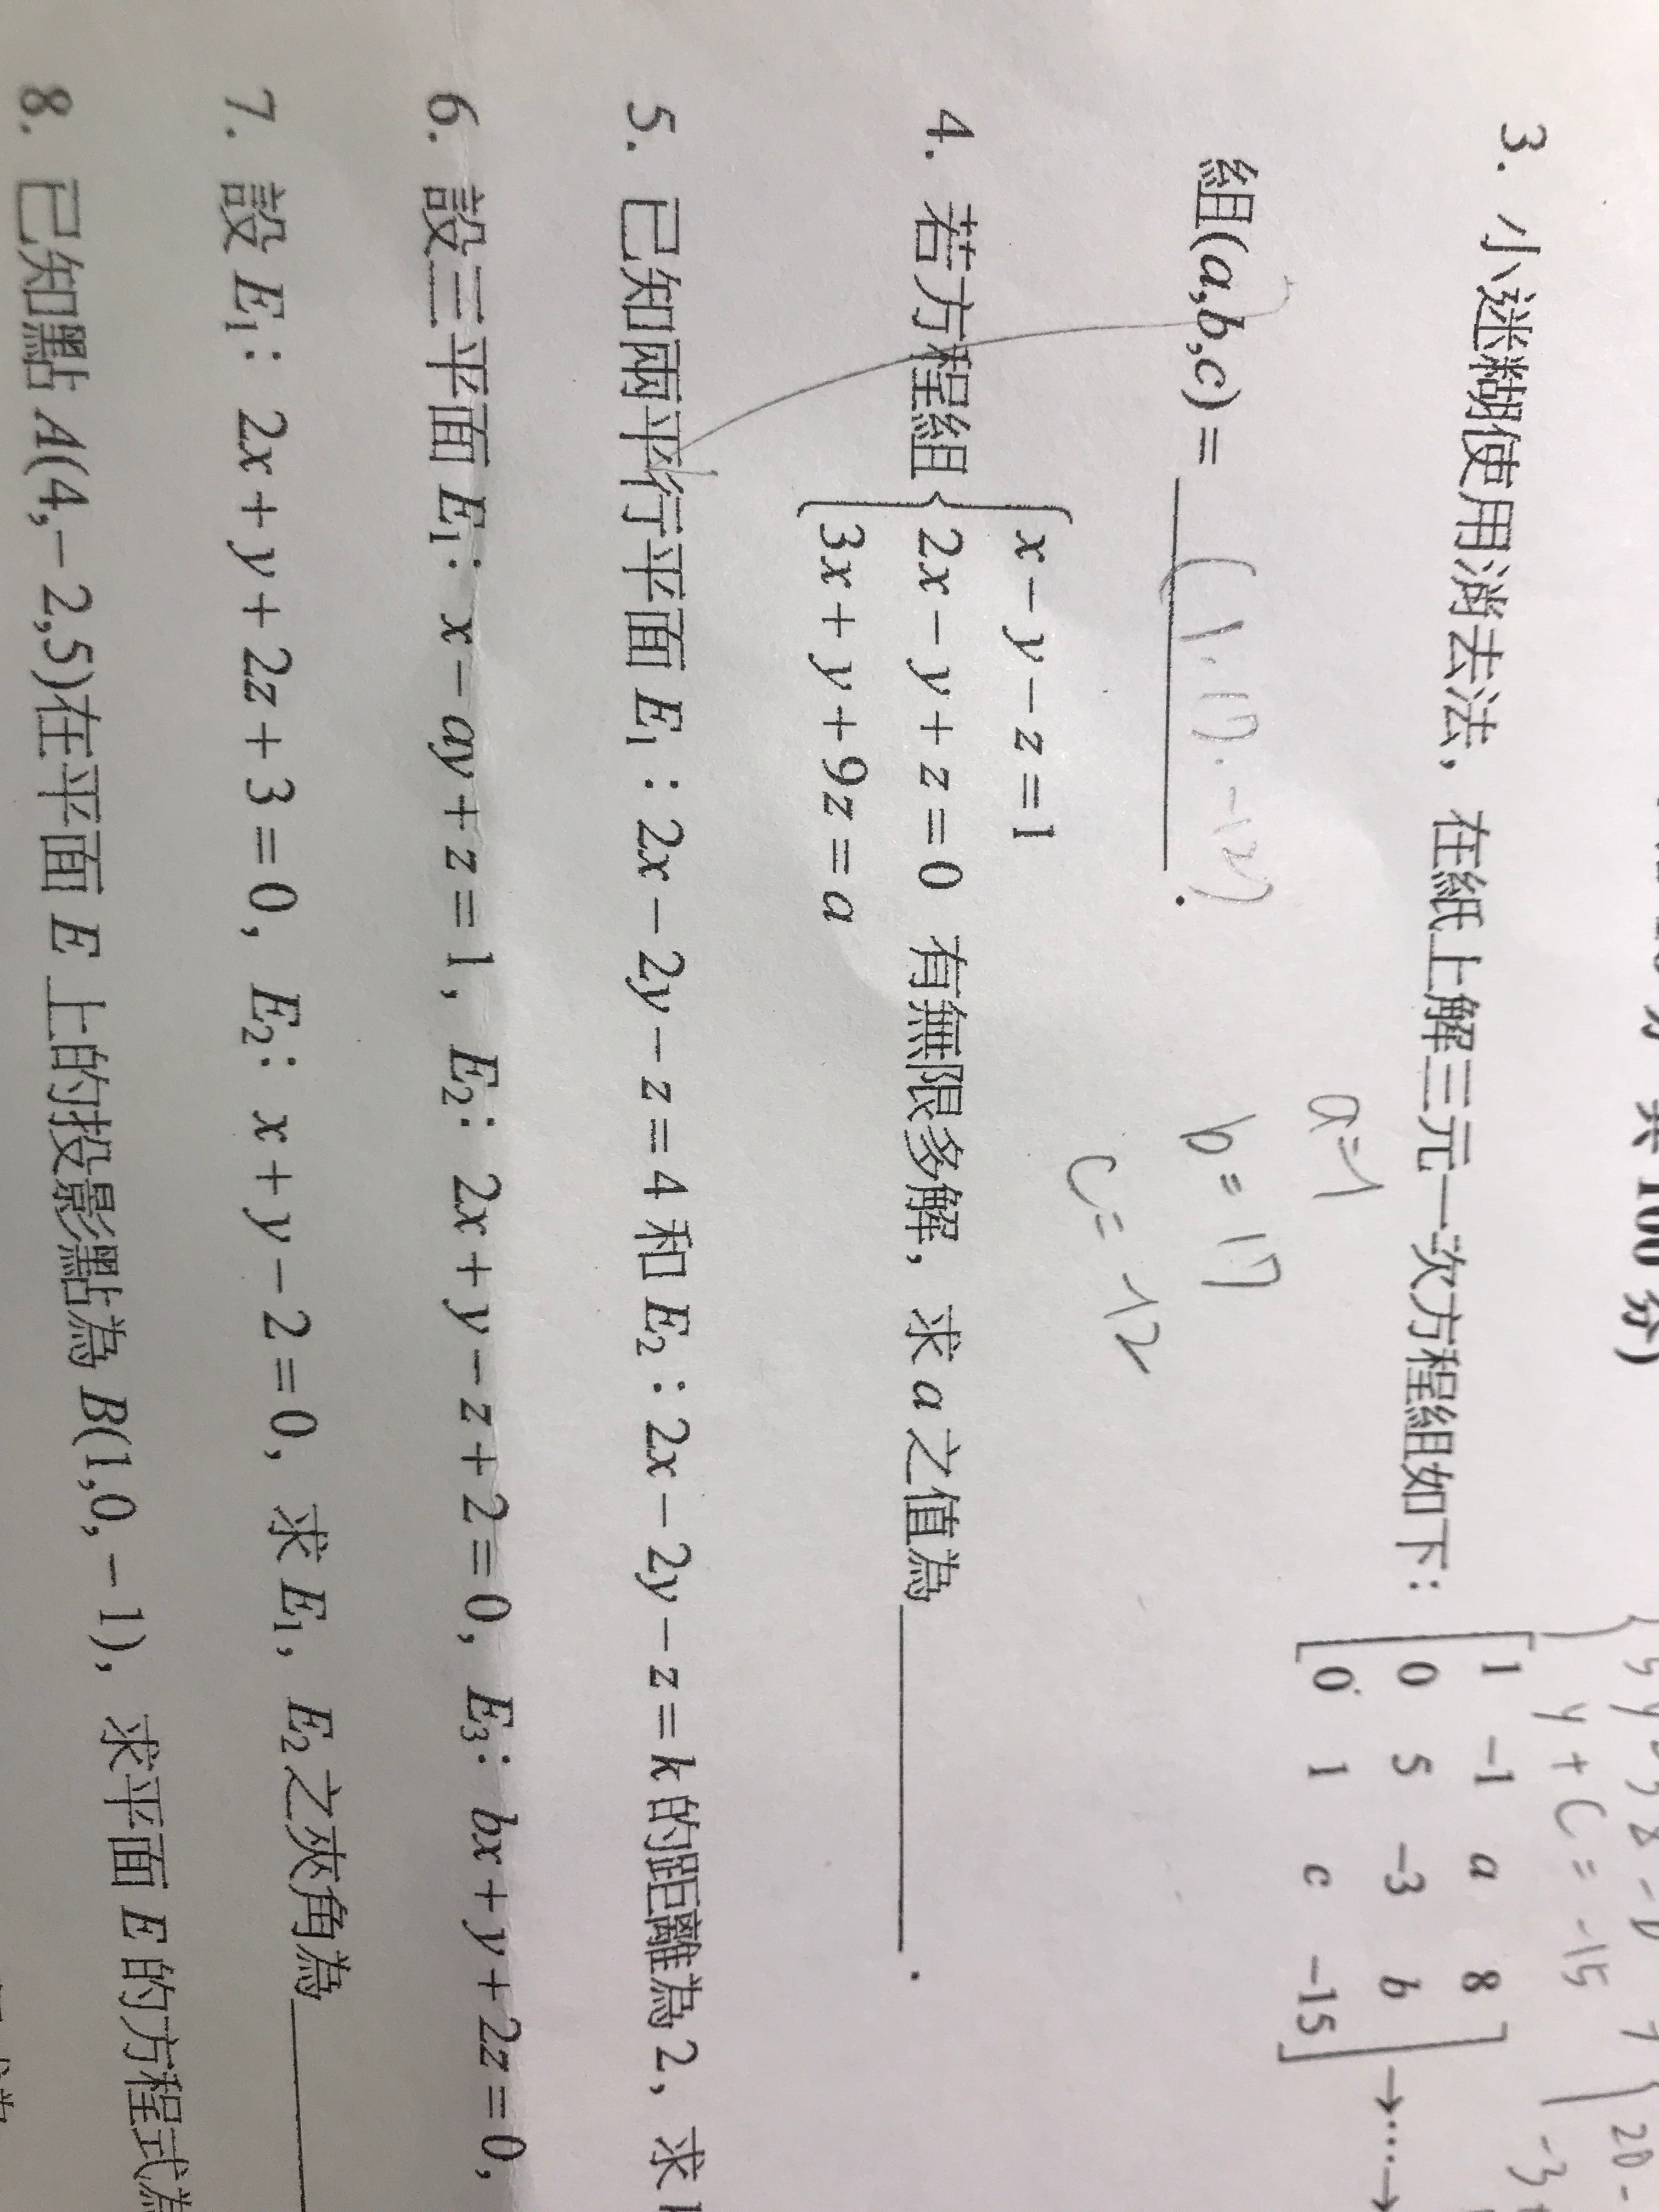 共 100 分)
3. 小迷糊使用消去法，在紙上解三元一次方程組如下：[1 -1 a 8
0 5 -3 b
0 1 c -15] →…→
y + C = -15
組(a,b,c) = (1.17.-12).
a=1
b=17
c=-12
4. 若方程組 { x - y - z = 1
2x - y + z = 0 有無限多解，求 a 之值為________.
3x + y + 9z = a
5. 已知兩平行平面 E₁：2x - 2y - z = 4 和 E₂：2x - 2y - z = k 的距離為 2，求
6. 設三平面 E₁：x - ay + z = 1，E₂：2x + y - z + 2 = 0，E₃：bx + y + 2z = 0，
7. 設 E₁：2x + y + 2z + 3 = 0，E₂：x + y - 2 = 0，求 E₁，E₂ 之夾角為________
8. 已知點 A(4,-2,5)在平面 E 上的投影點為 B(1,0,-1)，求平面 E 的方程式為